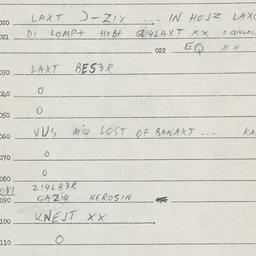 020 LAXT J-ZIX ... IN HOJZ LAX
021 DI LOMP+ HOBT LAXT XX
022 EQ XX
030 LAXT BES3R
040 O
050 O
060 VUS MIU LOST OF BANAXT ... KA
070 O
080 O
081 214LB3R
090 GAZ14 .. KEROSIN
100 KNEJT XX
110 O